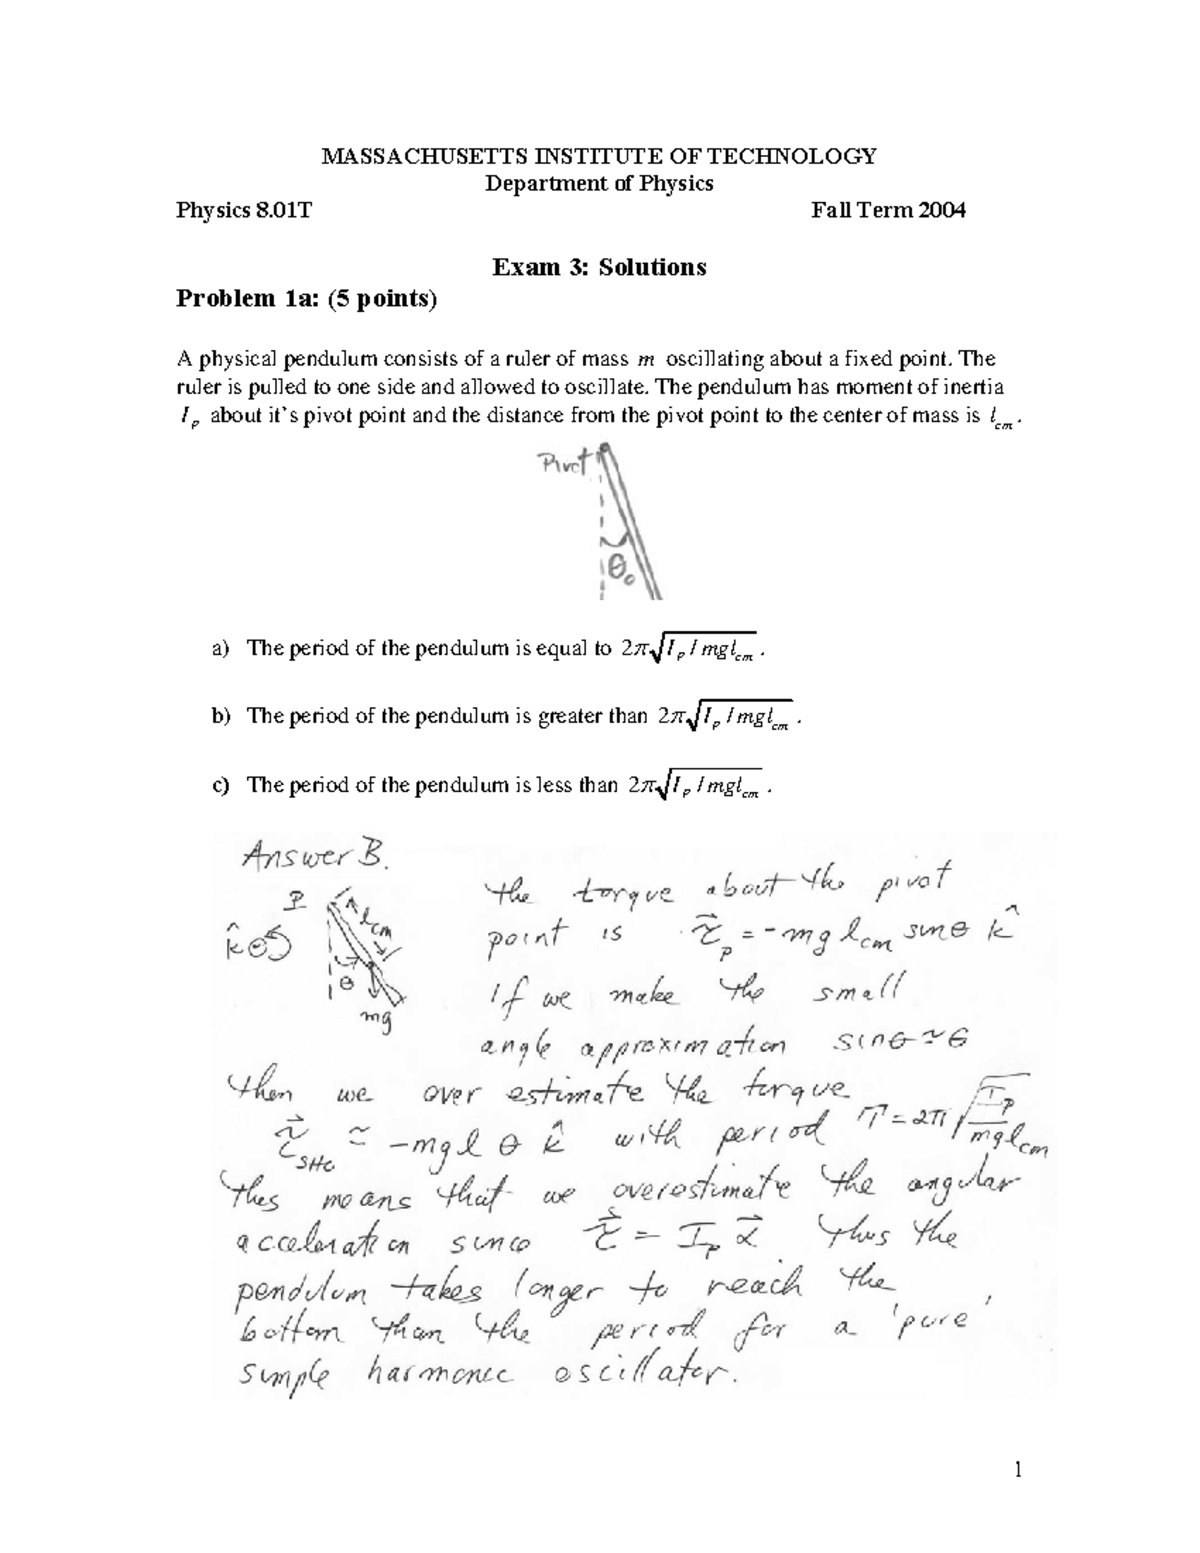 MASSACHUSETTS INSTITUTE OF TECHNOLOGY
Department of Physics
Physics 8.01T Fall Term 2004
Exam 3: Solutions
Problem 1a: (5 points)
A physical pendulum consists of a ruler of mass m oscillating about a fixed point. The
ruler is pulled to one side and allowed to oscillate. The pendulum has moment of inertia
I_p about it's pivot point and the distance from the pivot point to the center of mass is l_cm.
Pivot
θ₀
a) The period of the pendulum is equal to 2π√(I_p / mgl_cm).
b) The period of the pendulum is greater than 2π√(I_p / mgl_cm).
c) The period of the pendulum is less than 2π√(I_p / mgl_cm).
Answer B.
P
l_cm
k̂
θ
mg
the torque about the pivot
point is τ⃗_p = -mg l_cm sinθ k̂
If we make the small
angle approximation sinθ ≃ θ
then we over estimate the torque
τ⃗_SHO ≃ -mg l θ k̂ with period T = 2π√(I_p / mgl_cm)
This means that we overestimate the angular
acceleration since τ⃗ = I_p α⃗. Thus the
pendulum takes longer to reach the
bottom than the period for a 'pure'
simple harmonic oscillator.
1